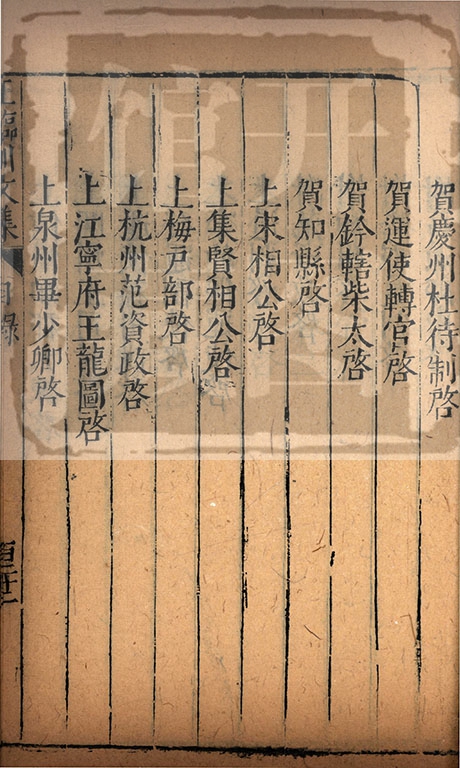 賀慶州杜待制啓
賀運使轉官啓
賀鈐轄柴太啓
賀知縣啓
上宋相公啓
上集賢相公啓
上梅戸部啓
上杭州范資政啓
上江寧府王龍圖啓
上泉州畢少卿啓
王臨川文集
目録